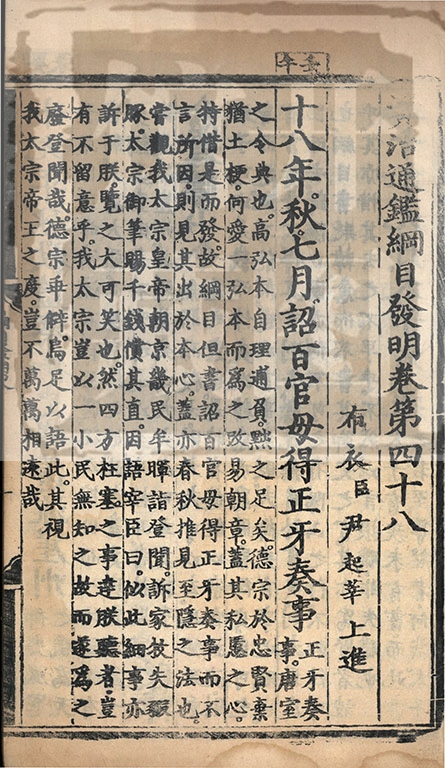 資治通鑑綱目發明卷第四十八
布衣臣尹起莘上進
十八年。秋。七月。詔百官毋得正牙奏事 正牙奏事。唐室
之令典也。高弘本自理逋負。黜之足矣。德宗於忠賢棄
猶土梗。何愛一弘本而爲之改易朝章。蓋其私慝之心。
特借是而發。故綱目但書詔百官毋得正牙奏事而不
言所因。則見其出於本心。蓋亦春秋推見至隱之法也。
嘗觀我太宗皇帝朝京畿民牟暉詣登聞。訴家奴失豭
豚。太宗御筆賜千錢償其直。因語宰臣曰似此細事亦
訴于朕。覽之大可笑也。然四方枉塞之事達朕聽者。豈
有不留意乎。我太宗豈以一小民無知之故而遂爲之
廢登聞哉。德宗乖僻。烏足以語此。其視
我太宗帝王之度。豈不萬萬相遠哉